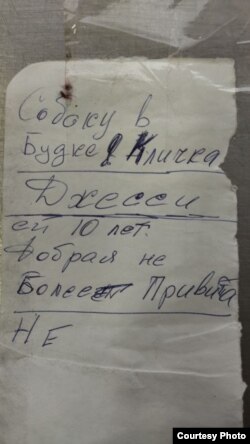 Собаку в
Будке Кличка
Джесси
ей 10 лет.
Добрая не
Болеет Привита
НЕ
Courtesy Photo